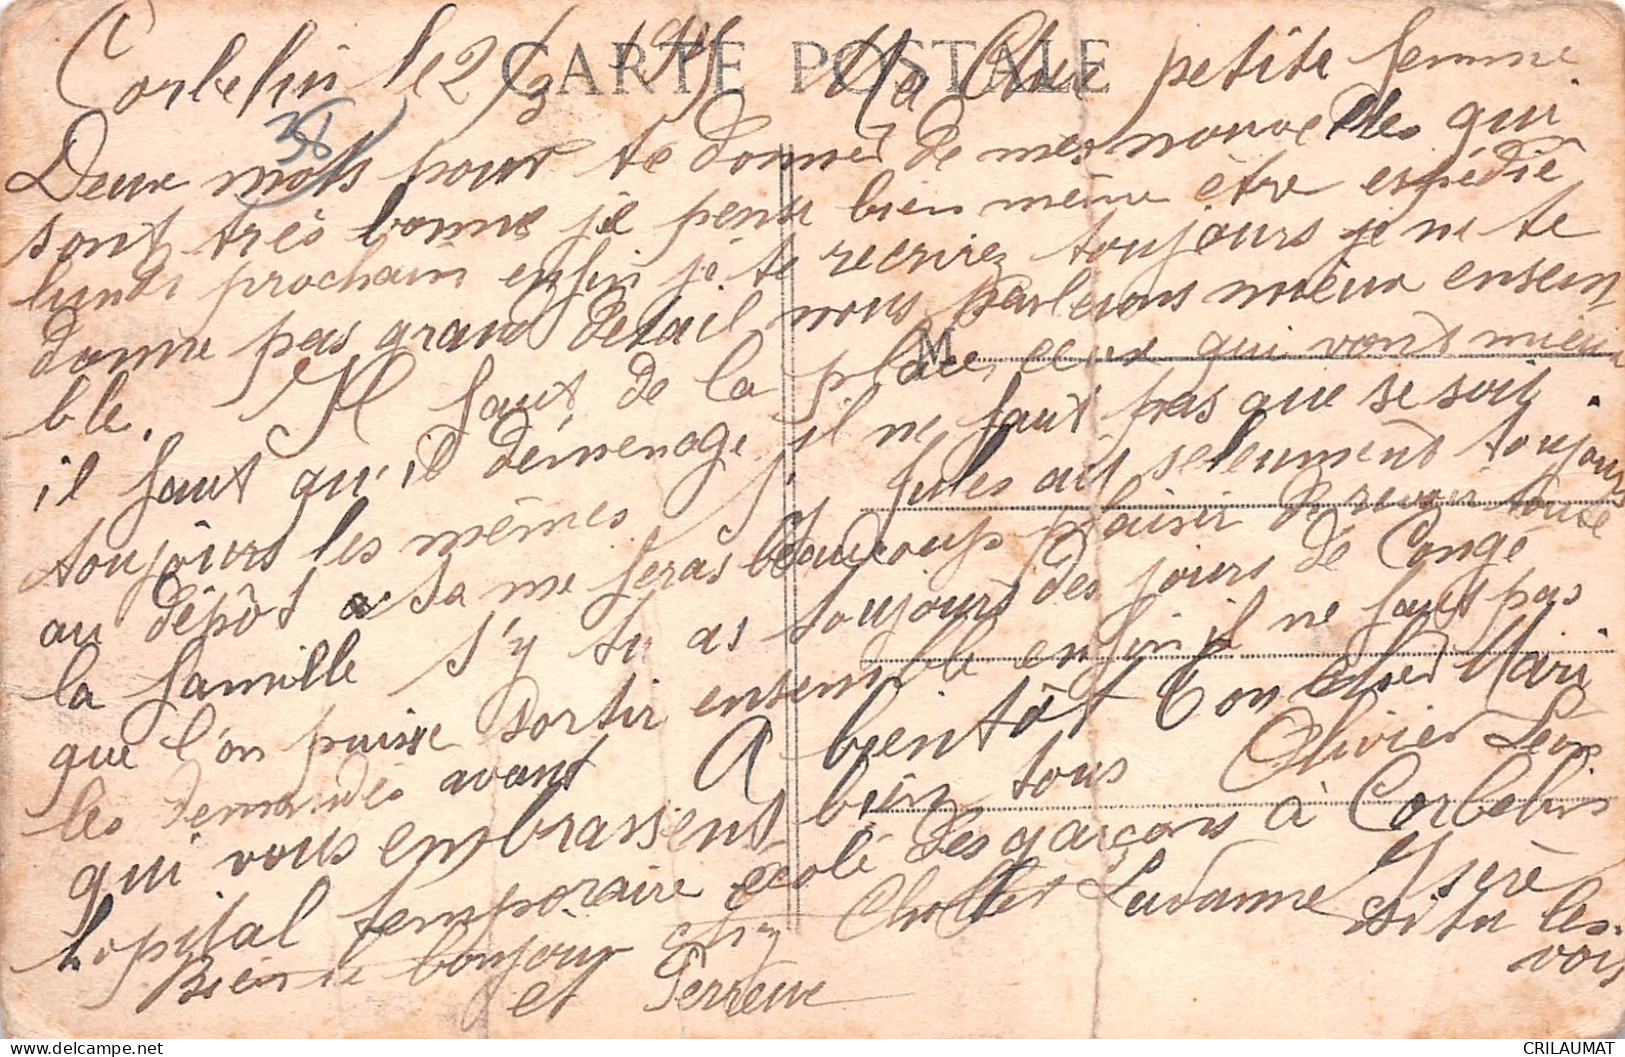 CARTE POSTALE
Corbelin le 2/3 Ma Cher petite femme
38
Deux mots pour te donner de mes nouvelles qui
sont très bonne je pense bien même être espédié
lundi prochain enfin je te recrirez toujours je ne te
donne pas grand detail nous parlerons mieux ensem
ble. Il faut de la place, ceux qui vont mieux
M
il faut qu'il démenage, il ne faut pas que se soit
toujours les mêmes j'y ait seleument toujours
au dépôt sa me feras beaucoup plaisir de revoir toute
la famille s'y tu as toujours des jours de Congé
que l'on puisse sortir ensemble enfin il ne faut pas
les demandés avant A bientôt Ton cher Mari
qui vous embrassent bien tous Olivier Léon
hopital temporaire école des garçons à Corbelin
Isère
Bien le bonjour chez Chollet Ludanne si tu les
vois
et Perreve
CRILAUMAT